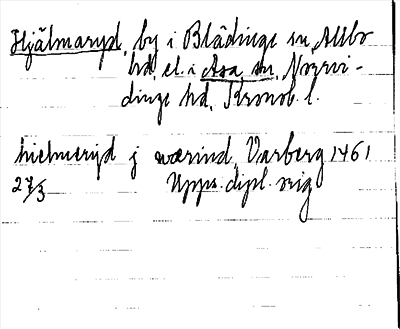 Hjälmaryd, by i Blädinge sn, Allbo
hd el. i Asa sn, Norrvi-
dinge hd, Kronob. l.
hielmeryd j wærind, Varberg 1461
27/3 Upps. dipl. orig